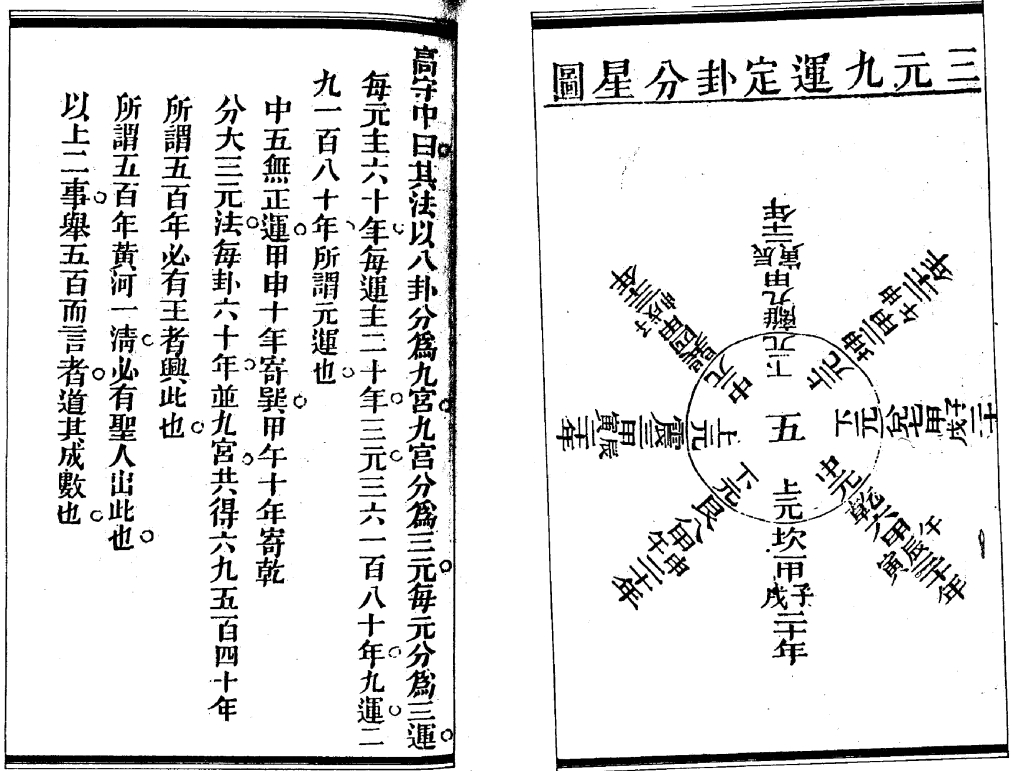 三元九運定卦分星圖
五
下元離九甲辰寅二十年
上元坤二甲申午二十年
下元兌七甲子戌二十
中元乾六甲午辰寅二十年
上元坎一甲子戌二十年
下元艮八甲申午二十年
上元震三甲辰寅二十年
中元巽四甲子戌申二十年
高守中曰其法以八卦分爲九宮九宮分爲三元每元分爲三運
每元主六十年每運主二十年三元三六一百八十年九運二
九一百八十年所謂元運也
中五無正運甲申十年寄巽甲午十年寄乾
分大三元法每卦六十年並九宮共得六九五百四十年
所謂五百年必有王者興此也
所謂五百年黃河一淸必有聖人出此也
以上二事舉五百而言者道其成數也